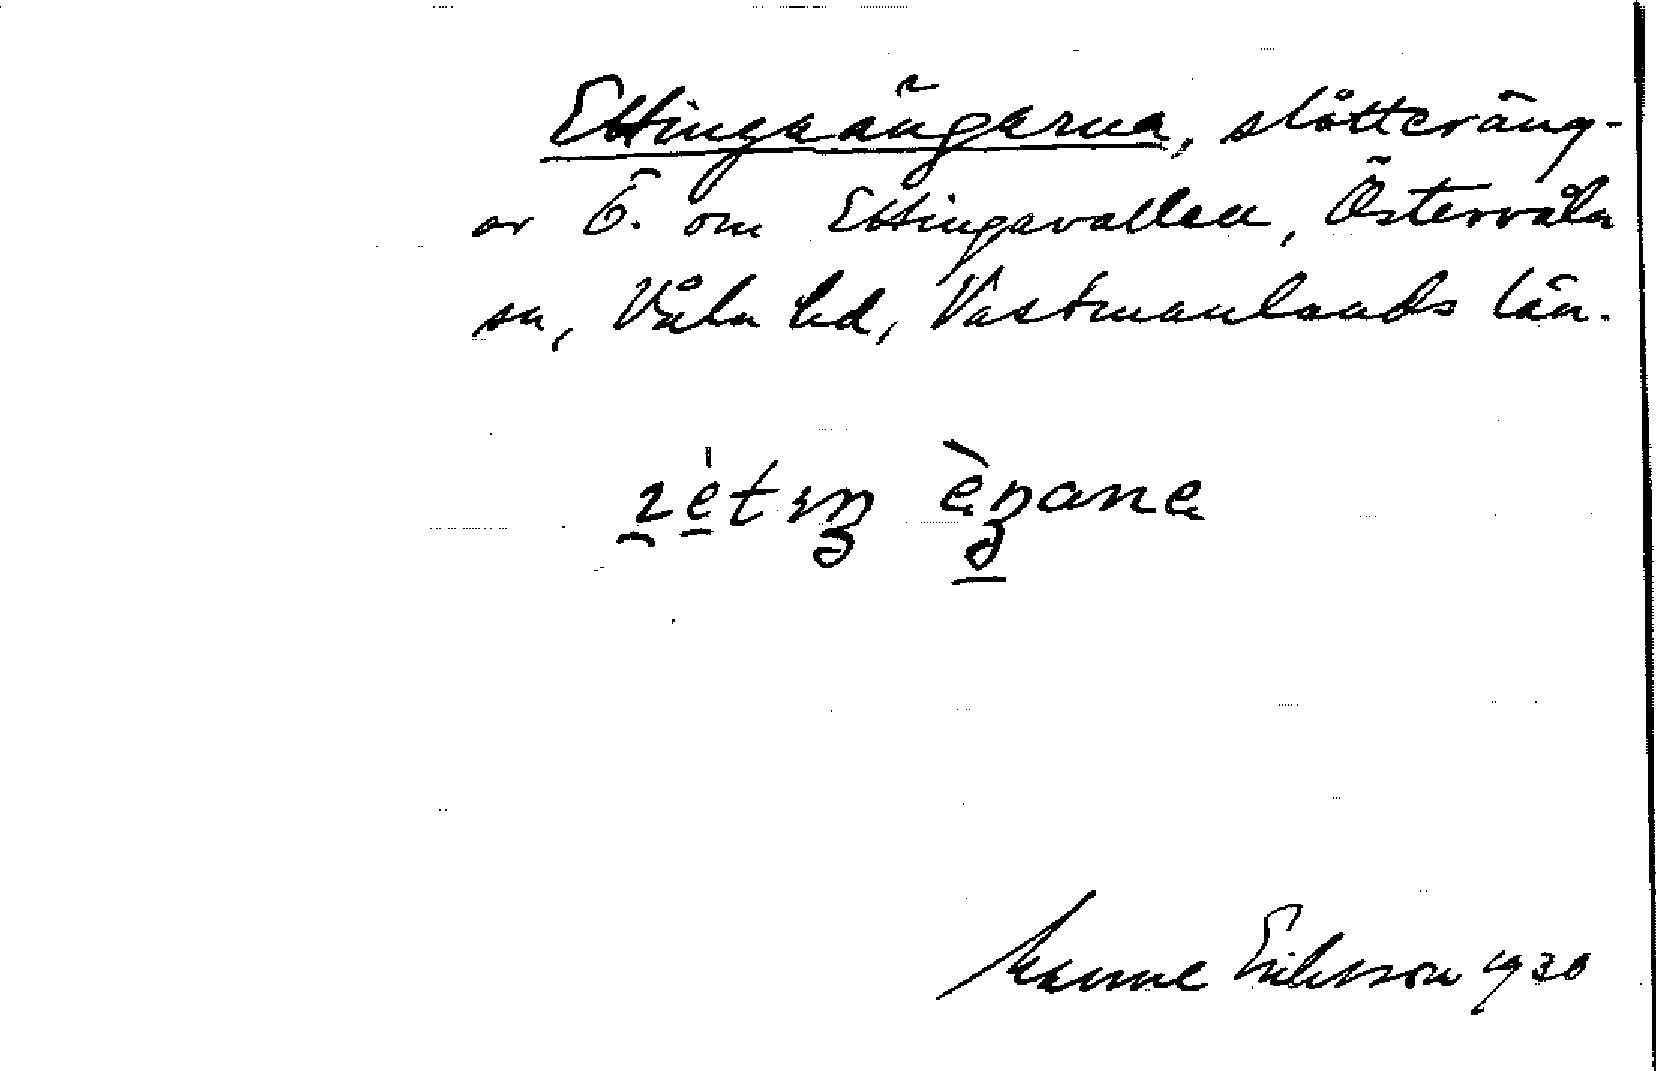 Ettingaängarna, slåtteräng-
ar Ö. om Ettingavallen, Östervåla
sn, Våla hd, Västmanlands län.
Manne Eriksson 1930